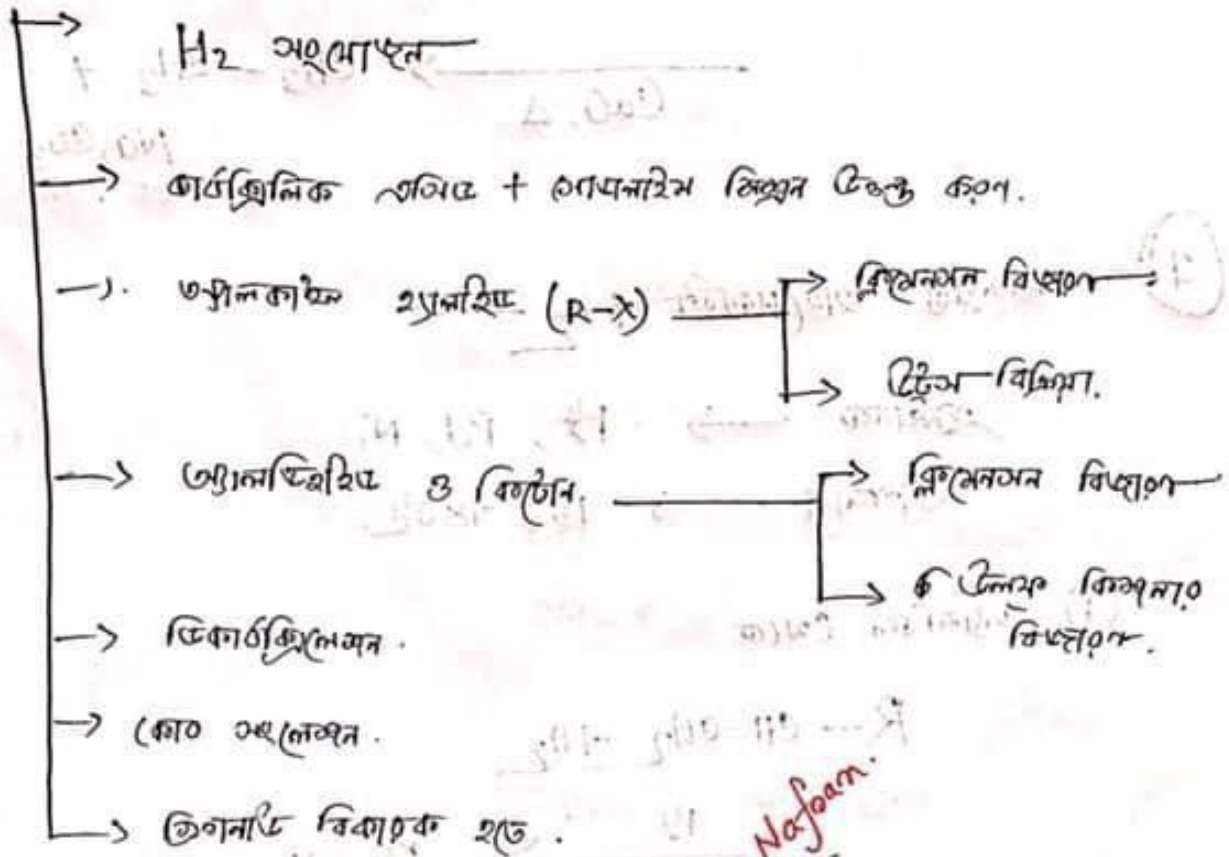 → H₂ সংযোজন
→ কার্বক্সিলিক এসিড + সোডালাইম মিশ্রন উত্তপ্ত করণ.
→ অ্যালকাইল হ্যালাইড (R-X) → ক্লিমেনসন বিজারণ
→ উর্টস বিক্রিয়া.
→ অ্যালডিহাইড ও কিটোন. → ক্লিমেনসন বিজারণ
→ উলফ কিশনার বিজারণ.
→ ডিকার্বক্সিলেশন.
→ কোব সংশ্লেষন.
→ গ্রিগনার্ড বিকারক হতে.
Nafisam.